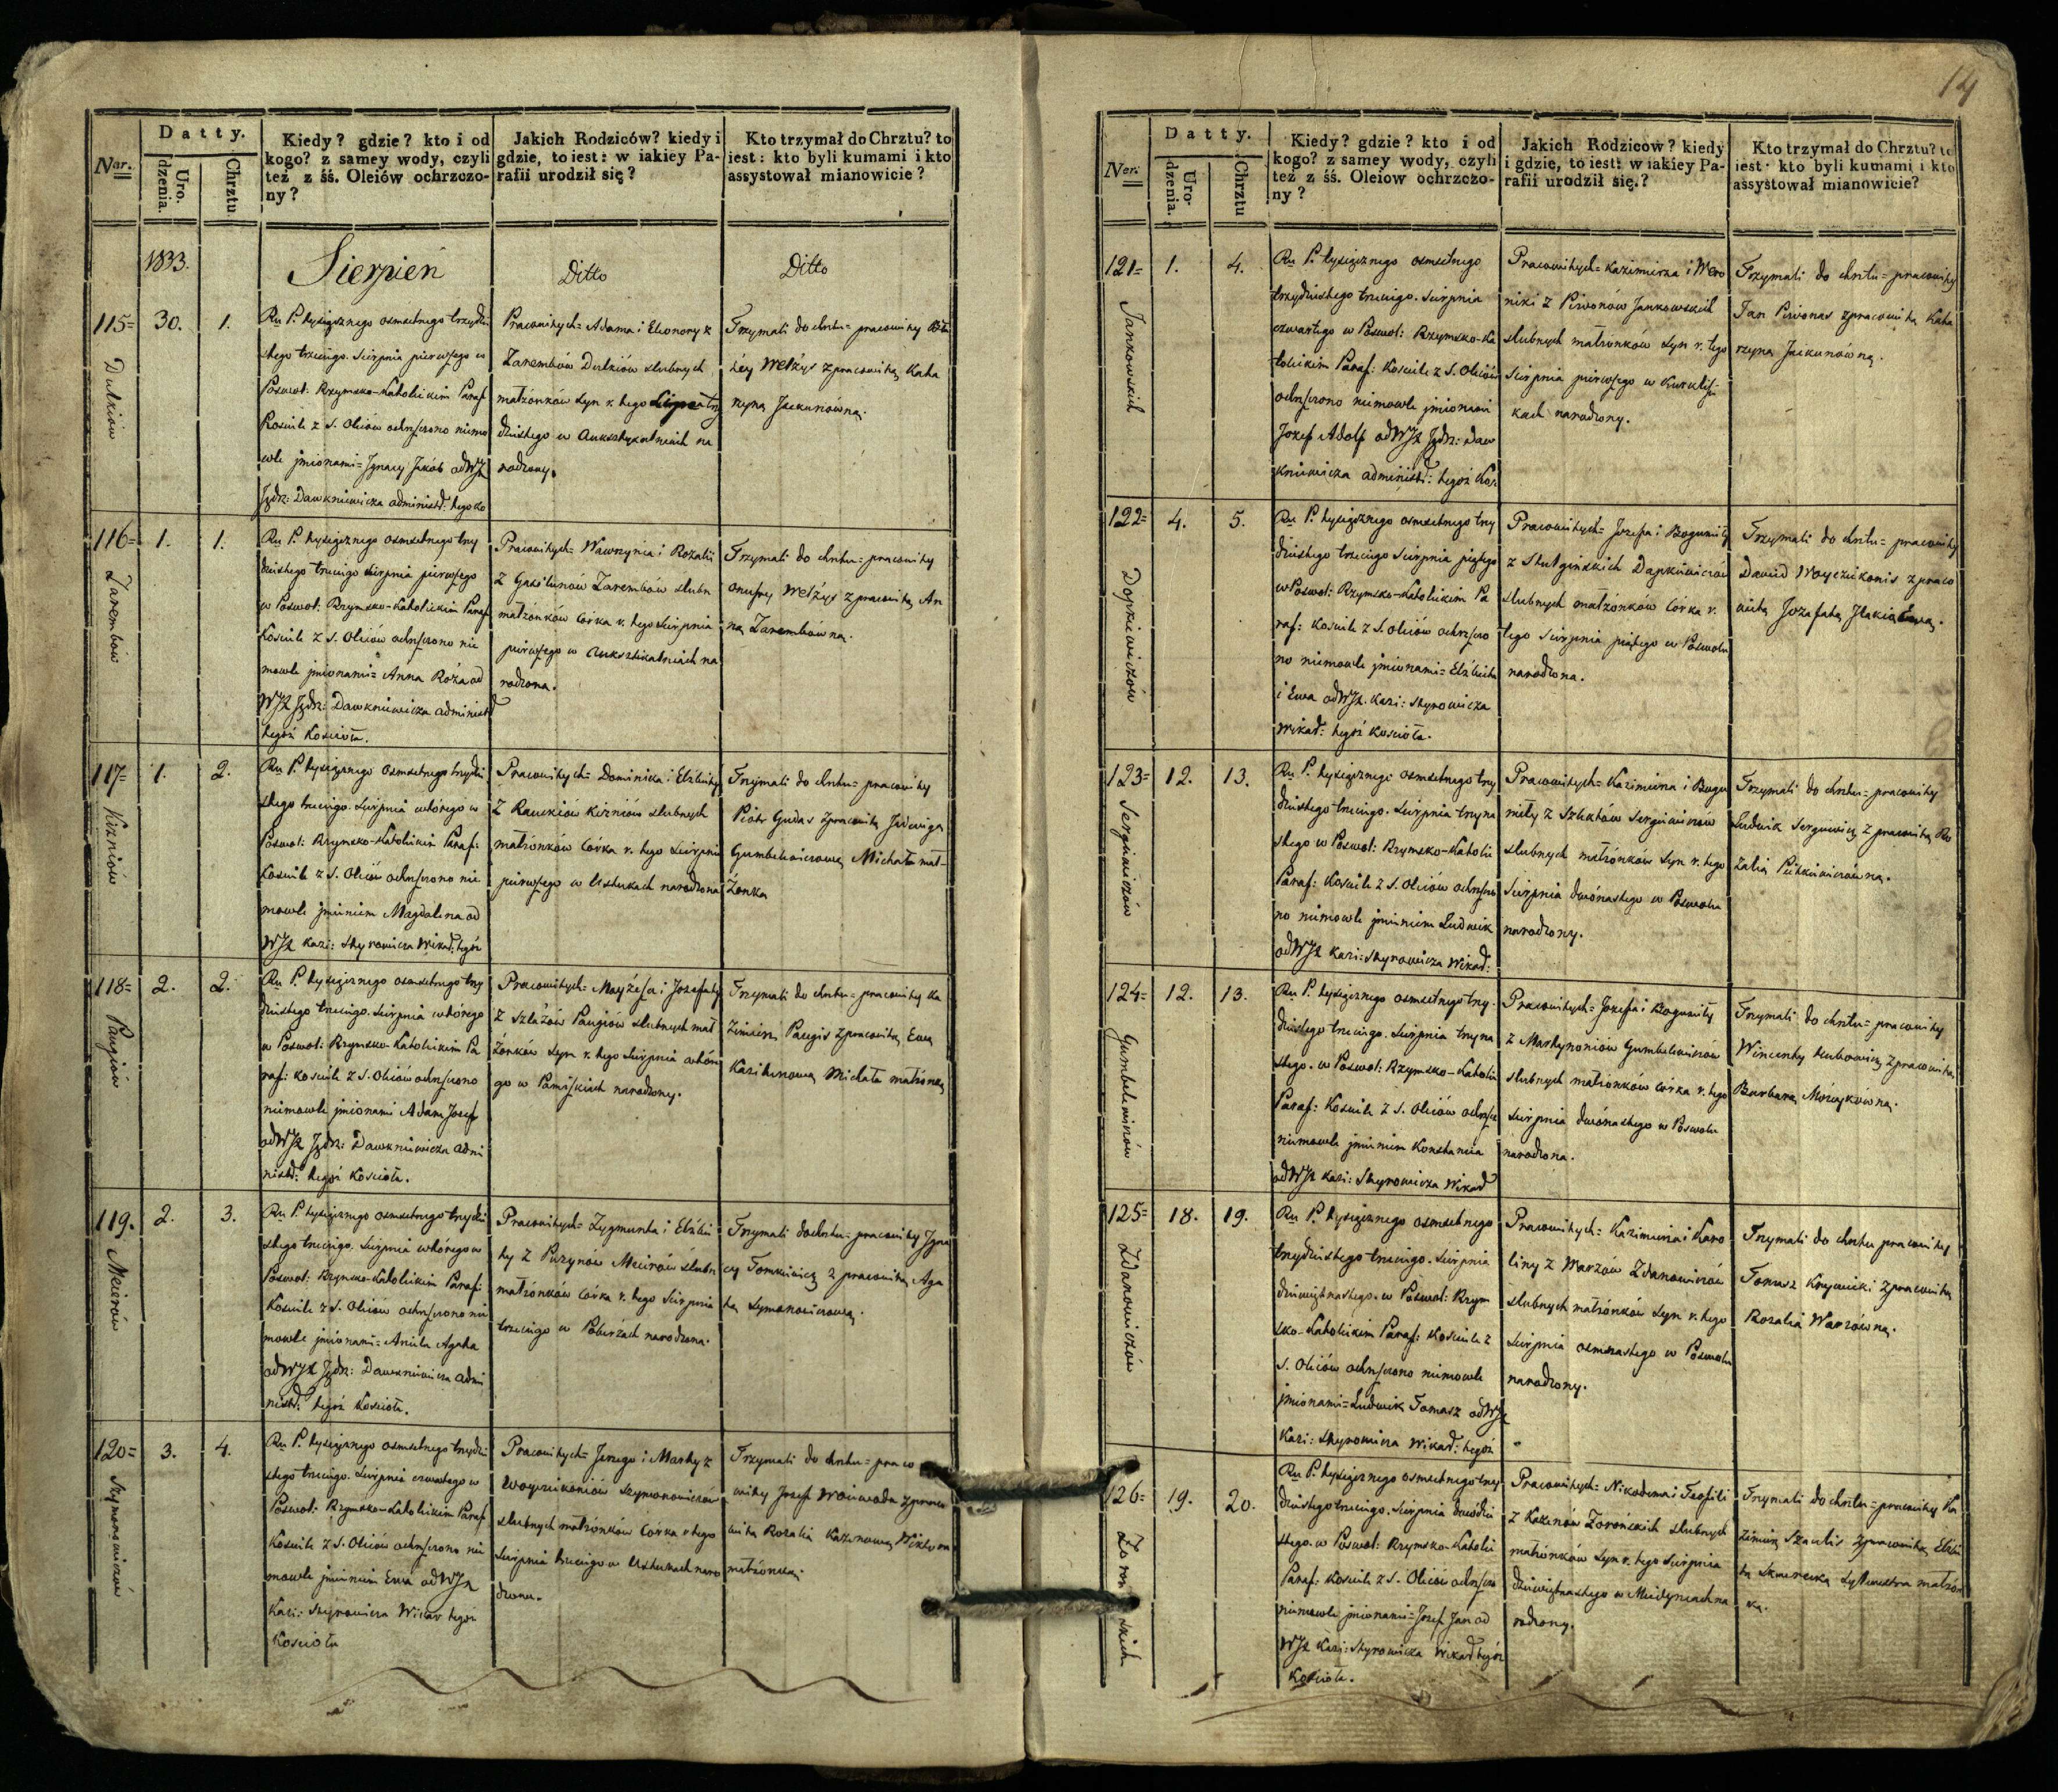 14
Nar.
Datty.
Uro-
dzenia.
Chrztu
Kiedy? gdzie? kto i od
kogo? z samey wody, czyli
też z śś. Oleiów ochrzczo-
ny?
Jakich Rodziców? kiedy i
gdzie, to iest: w iakiey Pa-
rafii urodził się?
Kto trzymał do Chrztu? to
iest: kto byli kumami i kto
assystował mianowicie?
1833.
Sierpień
Ditto
Ditto
115=
Dulkiów
30.
1.
Ru P. tysiącznego osmsetnego trzydzie
stego trzeciego. Sierpnia pierwszego w
Poswol: Rzymsko-Katolickim Paraf
Kosciele z S. Oleiów ochrzczono niemo
wle jmionami= Jgnacy Jakób od WJX
Jędrz: Dawkniewicza administ: tego Ko
Pracowitych= Adama i Eleonory z
Zarembów Dulkiów slubnych
małżonków Syn r. tego
dziestego w na
rodzony.
Trzymali do chrztu= pracowity
Wełżys z pracowitą Kata
rzyną Jackunówną.
116=
Zarembów
1.
1.
Ru P. tysiącznego osmsetnego trzy
dziestego trzeciego sierpnia pierwszego
w Poswol: Rzymsko-Katolickim Paraf:
Kosciele z S. Oleiów ochrzczono nie
mowle jmionami= Anna Róża od
WJX Jędrz: Dawkniewicza administ
tegoż Kosciołа.
Pracowitych= Wawrzynia i Rozalii
z Gasiunów Zarembów slubn
małżonków Córka r. tego Sierpnia
pierwszego w na
rodzona.
Trzymali do chrztu= pracowity
Onufry Wełżys z pracowitą An
ną Zarembówną.
117=
Kizniów
1.
2.
Ru P. tysiącznego osmsetnego trzydzie
stego trzeciego. Sierpnia wtórego w
Poswol: Rzymsko-Katolickim Paraf:
Kosciele z S. Oleiów ochrzczono nie
mowle jmieniem Magdalena od
WJX Kazi: Skyrowicza Wikar: tegoż
Pracowitych= Dominika i Elżbiety
z Rauckiów Kizniów slubnych
małżonków Córka r. tego Sierpnia
pierwszego w Ustukach narodzona
Trzymali do chrztu= pracowity
Piotr Gudas z pracowitą Jadwigą
Gumbelewiczową Michała mał-
żonka
118=
Paugiów
2.
2.
Ru P. tysiącznego osmsetnego trzy
dziestego trzeciego. Sierpnia wtórego
w Poswol: Rzymsko-Katolickim Pa
raf: Kosciele z S. Oleiów ochrzczono
niemowle jmionami Adam Jozef
od WJX Jędrz: Dawkniewicza admi
nist: tegoż Kosciołа.
Pracowitych= Mayżesza i Jozefaty
z Szlażów Paugiów slubnych mał
żonków Syn r. tego Sierpnia wtóre
go w narodzony.
Trzymali do chrztu= pracowity Ka
zimierz Paugis z pracowitą Ewą
Kazilunową Michała małżonką
119.
Meierów
2.
3.
Ru P. tysiącznego osmsetnego trzydzie
stego trzeciego. Sierpnia wtórego w
Poswol: Rzymsko-Katolickim Paraf:
Kosciele z S. Oleiów ochrzczono nie
mowle jmionami= Aniela Agata
od WJX Jędrz: Dawkniewicza admi
nist: tegoż Kosciołа.
Pracowitych= Zygmunta i Elżbie
ty z Puzynów Meierów slubn
małżonków Córka r. tego Sierpnia
trzeciego w Pobirżach narodzona.
Trzymali do chrztu= pracowity Jgna
cy Tomkiewicz z pracowitą Aga
tą Symonowiczową.
120=
Szymonowiczów
3.
4.
Ru P. tysiącznego osmsetnego trzydzie
stego trzeciego. Sierpnia czwartego w
Poswol: Rzymsko-Katolickim Paraf
Kosciele z S. Oleiów ochrzczono nie
mowle jmieniem Ewa od WJX
Kazi: Skyrowicza Wikar tegoż
Kosciołа
Pracowitych= Jerzego i Marty z
Woyczukoniów Szymonowiczów
slubnych małżonków Córka r tego
Sierpnia trzeciego w Ustukach naro
dzona.
Trzymali do chrztu= praco
wity Jozef Woiewoda z praco
witą Rozalią Kazenową
małżonką.
Nar:
Datty.
Uro-
dzenia.
Chrztu
Kiedy? gdzie? kto i od
kogo? z samey wody, czyli
też z śś. Oleiow ochrzczo-
ny?
Jakich Rodziców? kiedy
i gdzie, to iest: w iakiey Pa-
rafii urodził się.?
Kto trzymał do Chrztu? to
iest: kto byli kumami i kto
assystował mianowicie?
121=
Jankowskich
1.
4.
Ru P. tysiącznego osmsetnego
trzydziestego trzeciego. Sierpnia
czwartego w Poswol: Rzymsko-Ka
tolickim Paraf: Kosciele z S. Oleiów
ochrzczono niemowle jmionami
Jozef Adolf od WJX Jędrz: Daw
kniewicza administ: tegoż Kos:
Pracowitych= Kazimierza i Wero
niki z Piwonów Jankowskich
slubnych małżonków Syn r. tego
Sierpnia pierwszego w
kach narodzony.
Trzymali do chrztu= pracowity
Jan Piwonas z pracowitą Kata
rzyną Jackunówną.
122=
Dopkiewiczów
4.
5.
Ru P. tysiącznego osmsetnego trzy
dziestego trzeciego Sierpnia piątego
w Poswol: Rzymsko-Katolickim Pa
raf: Kosciele z S. Oleiów ochrzczo
no niemowle jmionami= Elżbieta
i Ewa od WJX. Kazi: Skyrowicza
Wikar: tegoż Kosciołа.
Pracowitych= Jozefa i Bogumiły
z Stulgińskich Dapkiewiczów
slubnych małżonków Córka r.
tego Sierpnia piątego w Poswolu
narodzona.
Trzymali do chrztu= pracowity
Dawid Woyczukonis z praco
witą Jozafatą
123=
Sergiewiczów
12.
13.
Ru P. tysiącznego osmsetnego trzy
dziestego trzeciego. Sierpnia trzyna
stego w Poswol: Rzymsko-Katolic
Paraf: Kosciele z S. Oleiów ochrzczo
no niemowle jmieniem Ludwik
od WJX Kazi: Skyrowicza Wikar:
Pracowitych= Kazimierza i Bogu
miły z Szluktów Sergiewiczów
slubnych małżonków Syn r. tego
Sierpnia dwónastego w Poswolu
narodzony.
Trzymali do chrztu= pracowity
Ludwik Sergiewicz z pracowitą Ro
zalią Pietkiewiczówną.
124=
Gumbelewiczów
12.
13.
Ru P. tysiącznego osmsetnego trzy-
dziestego trzeciego. Sierpnia trzyna
stego. w Poswol: Rzymsko-Katolic
Paraf: Kosciele z S. Oleiów ochrzcz
niemowle jmieniem Konstancia
od WJX Kazi: Skyrowicza Wikar
Pracowitych= Jozefa i Bogumiły
z Martynoniów Gumbelewiczów
slubnych małżonków Córka r. tego
Sierpnia dwónastego w Poswolu
narodzona.
Trzymali do chrztu= pracowity
Wincenty Kubowicz z pracowitą
Barbarą
125=
Zdanowiczów
18.
19.
Ru P. tysiącznego osmsetnego
trzydziestego trzeciego. Sierpnia
dziewiętnastego. w Poswol: Rzym
sko-Katolickim Paraf: Kosciele z
S. Oleiów ochrzczono niemowle
jmionami= Ludwik Tomasz od WJX
Kazi: Skyrowicza Wikar: tegoż
Pracowitych= Kazimierza i Karo
liny z Warzów Zdanowiczów
slubnych małżonków Syn r. tego
Sierpnia osmnastego w Poswolu
narodzony.
Trzymali do chrztu pracowity
Tomasz Krzywicki z pracowitą
Rozalią Warzówną.
126=
Zoronskich
19.
20.
Ru P. tysiącznego osmsetnego trzy-
dziestego trzeciego. Sierpnia dwódzie
stego. w Poswol: Rzymsko-Katolic
Paraf: Kosciele z S. Oleiów ochrzczo
niemowle jmionami= Jozef Jan od
WJX Kazi: Skyrowicza Wikar tegoż
Kosciołа.
Pracowitych= Nikodema i Teofili
z Kazenów Zorońskich slubnych
małżonków Syn r. tego Sierpnia
dziewiętnastego w na
rodzony.
Trzymali do chrztu= pracowity Ka
zimierz Szaulis z pracowitą Elżbie
tą Skurewką Sylwestra małżon
ką.